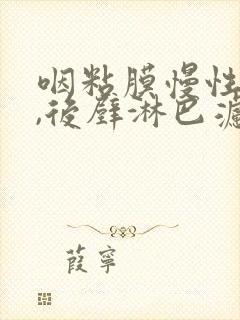 咽粘膜慢性
,後壁淋巴濾
葭寧